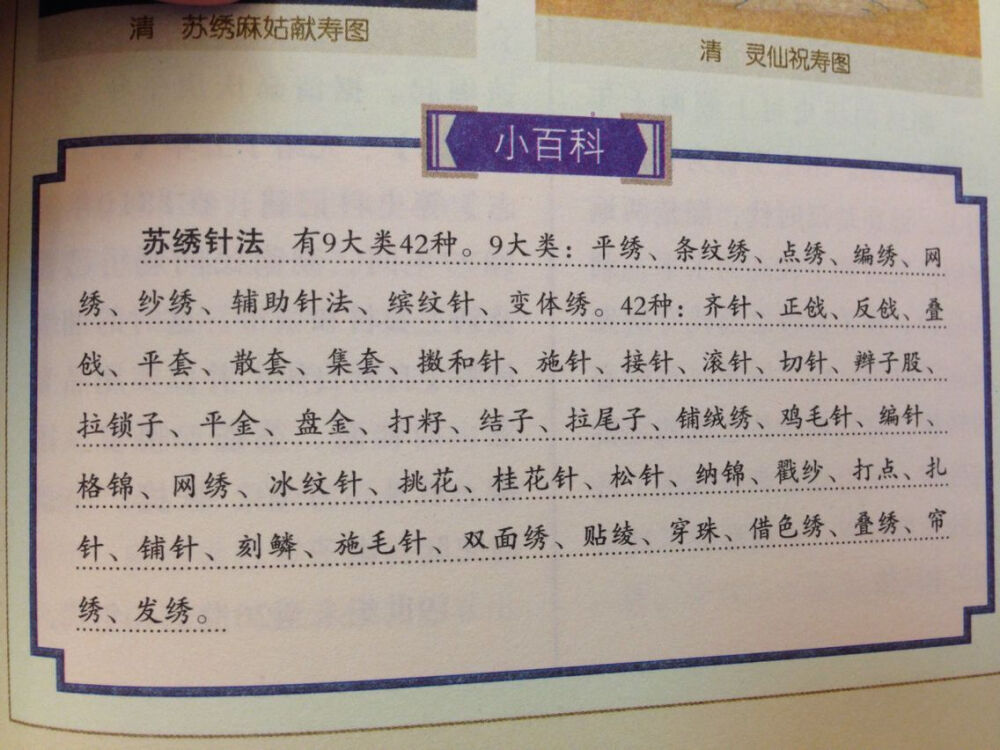 清 苏绣麻姑献寿图
清 灵仙祝寿图
小百科
苏绣针法 有9大类42种。9大类：平绣、条纹绣、点绣、编绣、网
绣、纱绣、辅助针法、缤纹针、变体绣。42种：齐针、正戗、反戗、叠
戗、平套、散套、集套、擞和针、施针、接针、滚针、切针、辫子股、
拉锁子、平金、盘金、打籽、结子、拉尾子、铺绒绣、鸡毛针、编针、
格锦、网绣、冰纹针、挑花、桂花针、松针、纳锦、戳纱、打点、扎
针、铺针、刻鳞、施毛针、双面绣、贴绫、穿珠、借色绣、叠绣、帘
绣、发绣。